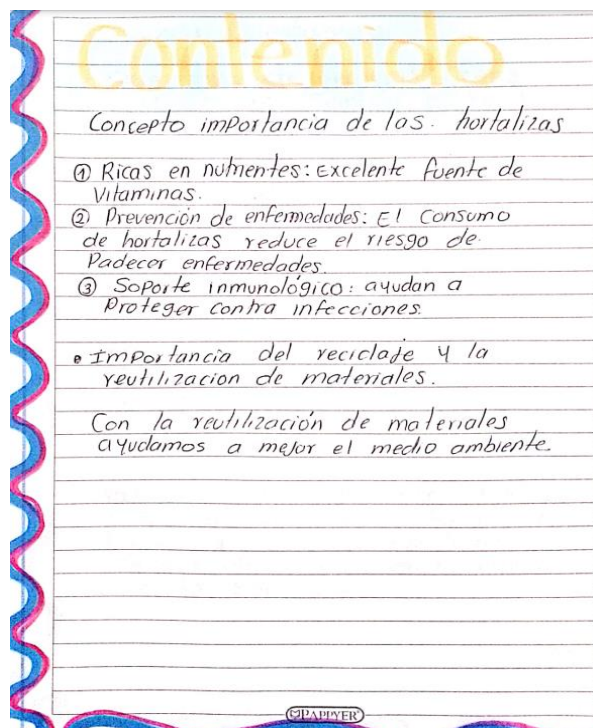 Contenido
Concepto importancia de las. hortalizas
① Ricas en nutrientes: Excelente fuente de
Vitaminas.
② Prevención de enfermedades: El Consumo
de hortalizas reduce el riesgo de.
Padecer enfermedades.
③ Soporte inmunológico: ayudan a
Proteger contra infecciones.
• Importancia del reciclaje y la
reutilizacion de materiales.
Con la reutilización de materiales
ayudamos a mejor el medio ambiente.
PAPPYER